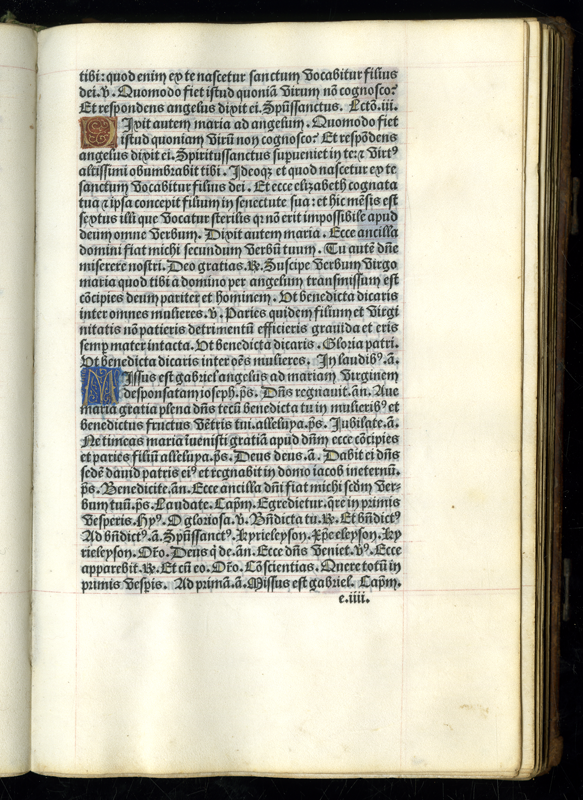 tibi: quod enim ex te nascetur sanctum vocabitur filius
dei. ꝟ. Quomodo fiet istud quoniā virum nō cognosco?
Et respondens angelus dixit ei. Sp̄ūssanctus. Lectō. iii.
Dixit autem maria ad angelum. Quomodo fiet
istud quoniam virū non cognosco? Et respōdens
angelus dixit ei. Spiritussanctus supueniet in te: ⁊ virtꝰ
altissimi obumbrabit tibi. Ideoqꝫ et quod nascetur ex te
sanctum vocabitur filius dei. Et ecce elizabeth cognata
tua ⁊ ipsa concepit filium in senectute sua: et hic mēsis est
sextus illi que vocatur sterilis q: nō erit impossibile apud
deum omne verbum. Dixit autem maria. Ecce ancilla
domini fiat michi secundum verbū tuum. Tu autē dn̄e
miserere nostri. Deo gratias. ℟. Suscipe verbum virgo
maria quod tibi a domino per angelum transmissum est
cōcipies deum pariter et hominem. Ut benedicta dicaris
inter omnes mulieres. ꝟ. Paries quidem filium et virgi
nitatis nō patieris detrimentū efficieris grauida et eris
semꝑ mater intacta. Ut benedicta dicaris. Gloria patri.
Ut benedicta dicaris inter oēs mulieres. In laudibꝰ. a.
Missus est gabriel angelus ad mariam virginem
desponsatam ioseph. p̄s. Dn̄s regnauit. an̄. Aue
maria gratia plena dn̄s tecū benedicta tu in mulieribꝰ et
benedictus fructus vētris tui. alleluya. p̄s. Jubilate. a.
Ne timeas maria īuenisti gratiā apud dn̄m ecce cōcipies
et paries filiū alleluya. p̄s. Deus deus. a. Dabit ei dn̄s
sedē dauid patris eiꝰ et regnabit in domo iacob ineternū.
p̄s. Benedicite. an̄. Ecce ancilla dn̄i fiat michi scd̄m ver-
bum tuū. p̄s. Laudate. Cap̄m. Egredietur. q̄re in primis
vesperis. Hyꝰ. O gloriosa. ꝟ. Bn̄dicta tu. ℟. Et bn̄dictꝰ
Ad bn̄dictꝰ. a. Sp̄ūssanctꝰ. kyrieleyson. xp̄e eleyson. ky
rieleyson. Or̄o. Deus q̇ de. an̄. Ecce dn̄s veniet. ꝟꝰ. Ecce
apparebit. ℟. Et cū eo. Or̄o. Cōscientias. Quere totū in
primis vesꝑis. Ad primā. a. Missus est gabriel. Cap̄m.
e. iiii.